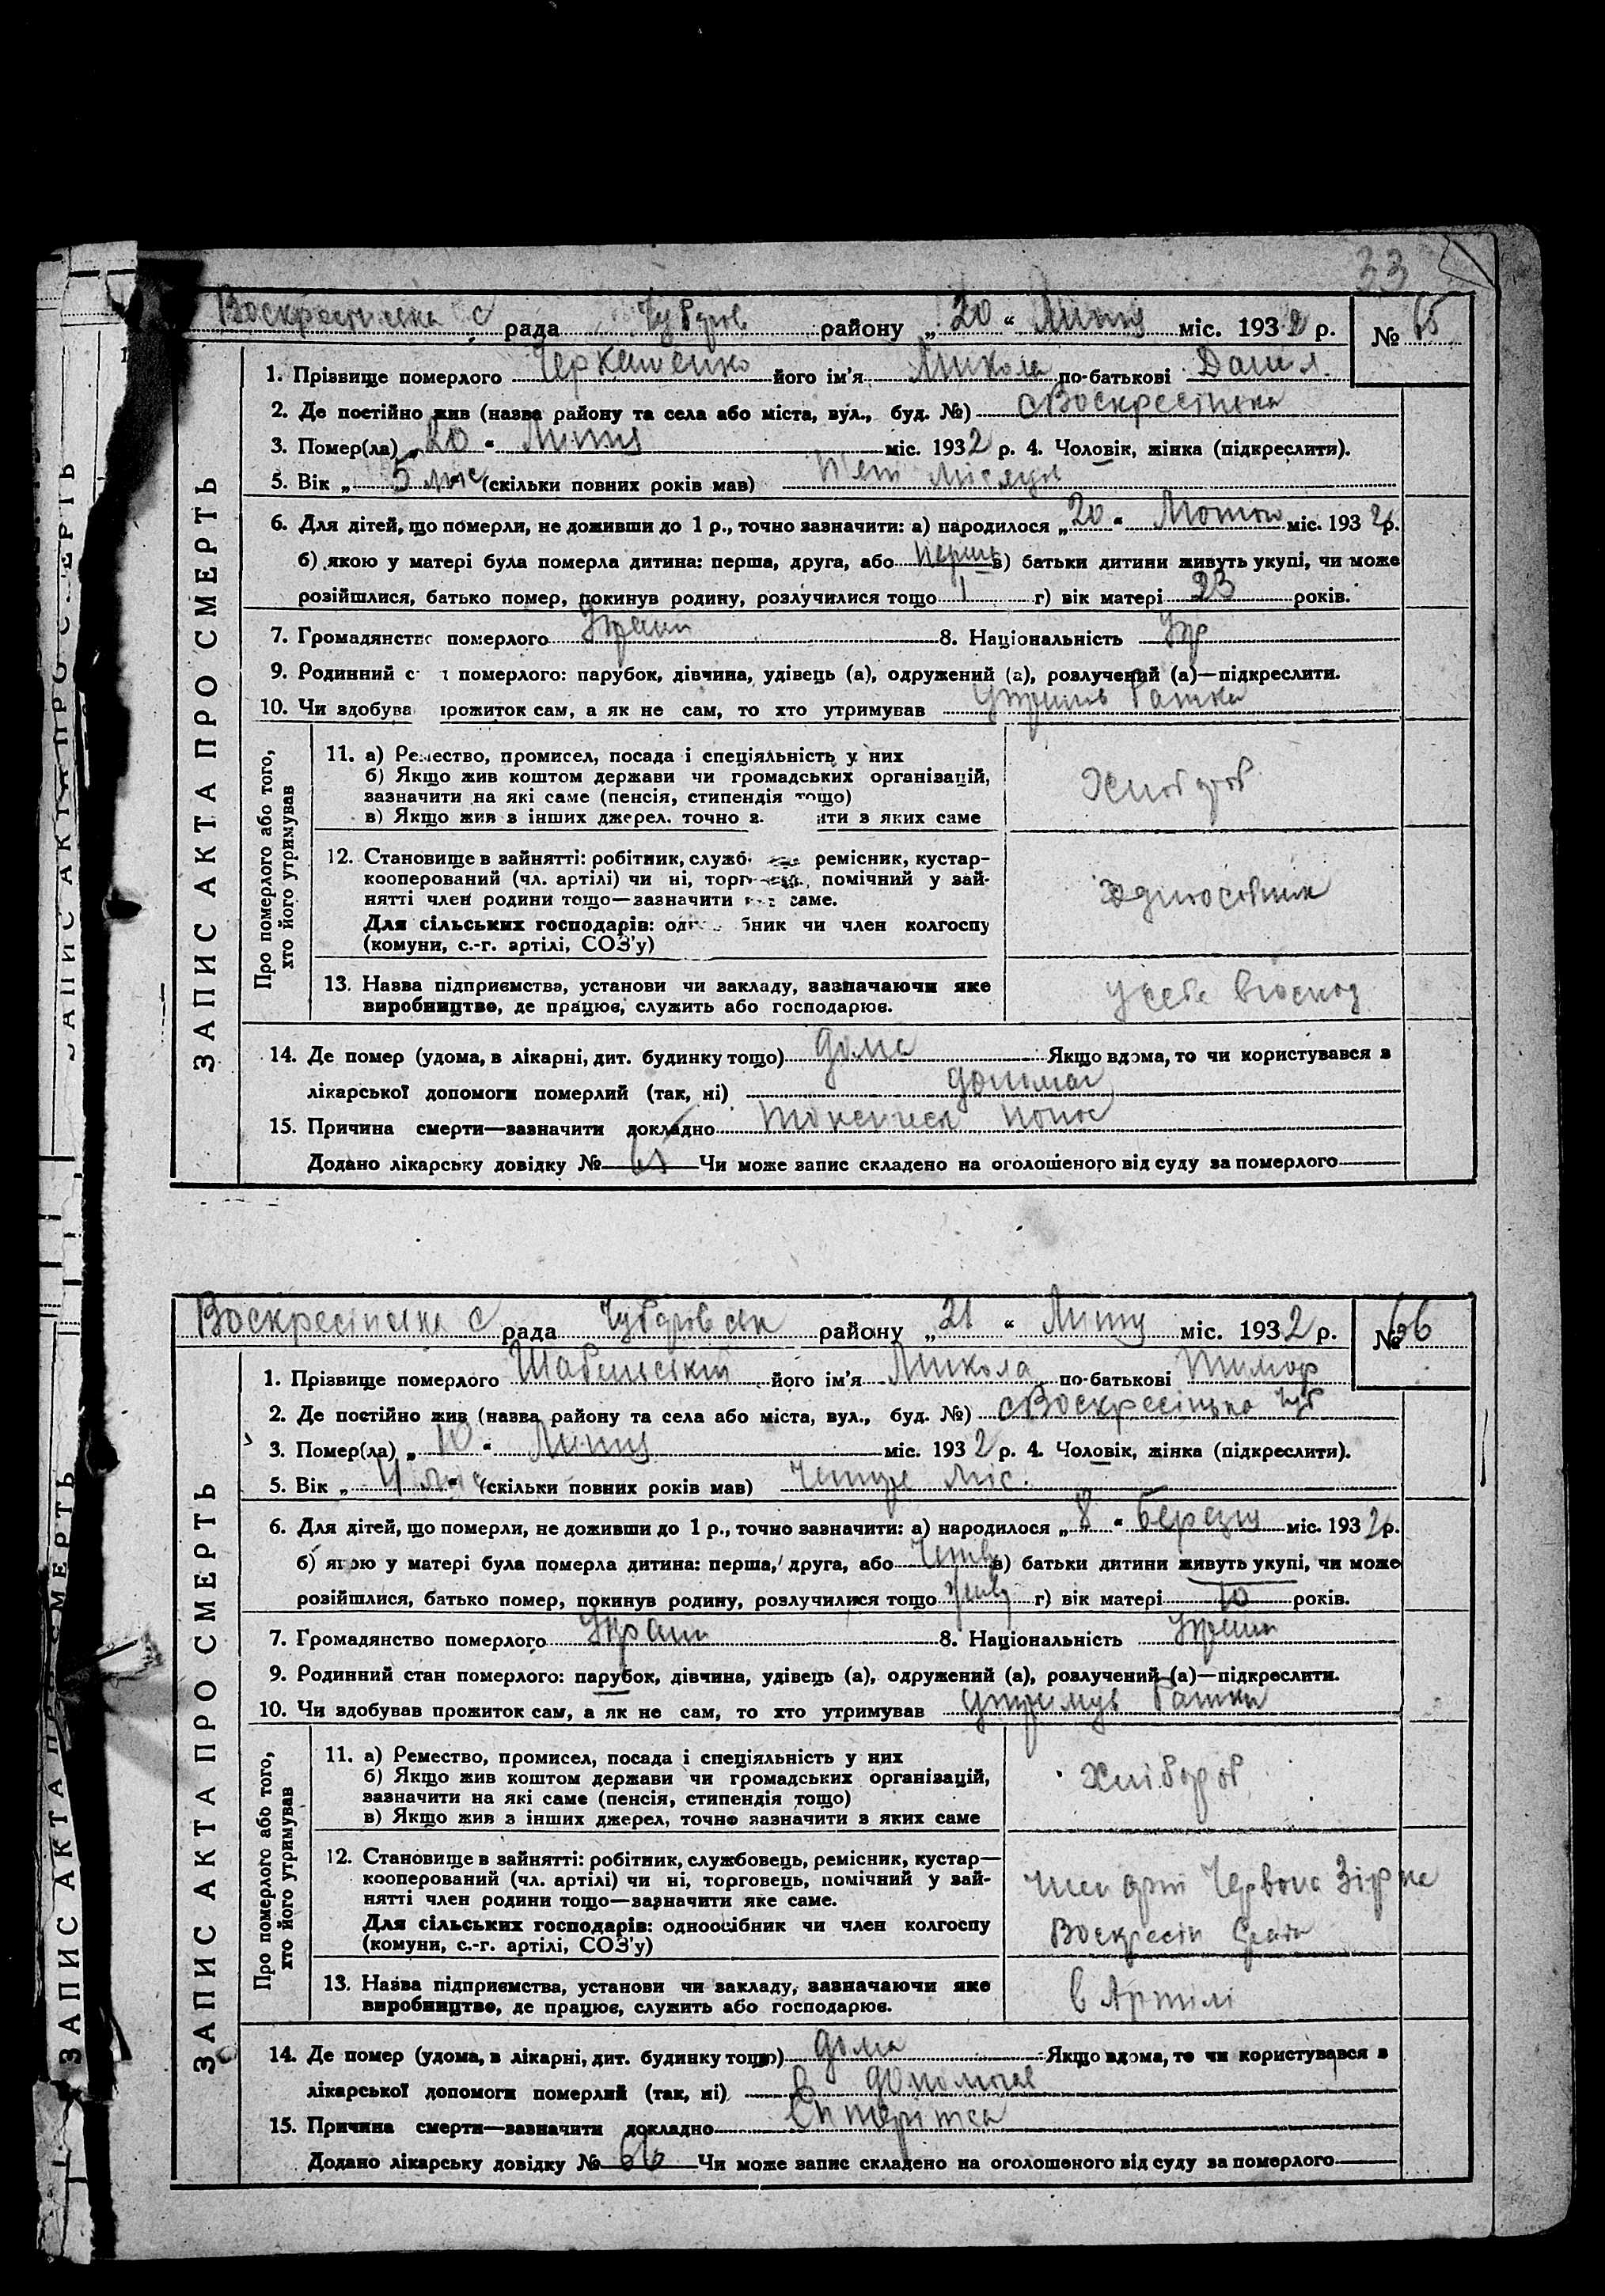 33
Воскресінська с рада Чубарів району „20“ Липня міс. 1932 р. № 65
1. Прізвище померлого Черкашенко його ім'я Микола по-батькові Данил.
2. Де постійно жив (назва району та села або міста, вул., буд. №) с Воскресінська
3. Помер(ла) „20“ Липня міс. 1932 р. 4. Чоловік, жінка (підкреслити).
5. Вік „5 міс“ (скільки повних років мав) Пять місяців
6. Для дітей, що померли, не доживши до 1 р., точно зазначити: а) народилося „20“ Лютого міс. 1932 р.
б) якою у матері була померла дитина: перша, друга, або перша в) батьки дитини живуть укупі, чи може
розійшлися, батько помер, покинув родину, розлучилися тощо г) вік матері 23 років.
7. Громадянство померлого Украін 8. Національність Укр
9. Родинний с т померлого: парубок, дівчина, удівець (а), одружений (а), розлучений (а)—підкреслити.
10. Чи здобува прожиток сам, а як не сам, то хто утримував утримув батька
11. а) Ремество, промисел, посада і спеціяльність у них
б) Якщо жив коштом держави чи громадських організацій,
зазначити на які саме (пенсія, стипендія тощо)
в) Якщо жив з інших джерел, точно за ити з яких саме
Хлібороб
12. Становище в зайнятті: робітник, служб ремісник, кустар-
кооперований (чл. артілі) чи ні, торг помічний у зай-
нятті член родини тощо—зазначити яке саме.
Для сільських господарів: од бник чи член колгоспу
(комуни, с.-г. артілі, СОЗ'у)
Одноосібник
13. Назва підприємства, установи чи закладу, зазначаючи яке
виробництво, де працює, служить або господарює.
У себе в господ
14. Де помер (удома, в лікарні, дит. будинку тощо) дома Якщо вдома, то чи користувався з
лікарської допомоги померлий (так, ні)
15. Причина смерти—зазначити докладно понос
Додано лікарську довідку № 65 Чи може запис складено на оголошеного від суду за померлого
ЗАПИС АКТА ПРО СМЕРТЬ
Про померлого або того,
хто його утримував
Воскресінська с рада Чубарівськ району „21“ Липня міс. 1932 р. № 66
1. Прізвище померлого його ім'я Микола по-батькові Тимоф
2. Де постійно жив (назва району та села або міста, вул., буд. №) с Воскресінська Чуб
3. Помер(ла) „10“ Липня міс. 1932 р. 4. Чоловік, жінка (підкреслити).
5. Вік „4 міс“ (скільки повних років мав) Чотире міс.
6. Для дітей, що померли, не доживши до 1 р., точно зазначити: а) народилося „8“ березня міс. 1932 р.
б) якою у матері була померла дитина: перша, друга, або Четв в) батьки дитини живуть укупі, чи може
розійшлися, батько помер, покинув родину, розлучилися тощо живу г) вік матері років.
7. Громадянство померлого Украін 8. Національність Украін
9. Родинний стан померлого: парубок, дівчина, удівець (а), одружений (а), розлучений (а)—підкреслити.
10. Чи здобував прожиток сам, а як не сам, то хто утримував утримув батька
11. а) Ремество, промисел, посада і спеціяльність у них
б) Якщо жив коштом держави чи громадських організацій,
зазначити на які саме (пенсія, стипендія тощо)
в) Якщо жив з інших джерел, точно зазначити з яких саме
Хлібороб
12. Становище в зайнятті: робітник, службовець, ремісник, кустар—
кооперований (чл. артілі) чи ні, торговець, помічний у зай-
нятті член родини тощо—зазначити яке саме.
Для сільських господарів: одноосібник чи член колгоспу
(комуни, с.-г. артілі, СОЗ'у)
Член арт Червона Зірка
Воскресін
13. Назва підприємства, установи чи закладу, зазначаючи яке
виробництво, де працює, служить або господарює.
в Артілі
14. Де помер (удома, в лікарні, дит. будинку тощо) дома Якщо вдома, то чи користувався з
лікарської допомоги померлий (так, ні)
15. Причина смерти—зазначити докладно
Додано лікарську довідку № 66 Чи може запис складено на оголошеного від суду за померлого
ЗАПИС АКТА ПРО СМЕРТЬ
Про померлого або того,
хто його утримував